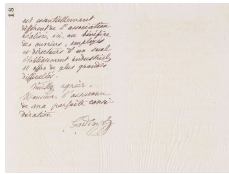 18
est essentiellement
différent de l'association
établie, ici, au bénéfice
des ouvriers, employés
et directeurs d'un seul
établissement industriel,
et offre de plus grandes
difficultés.
Veuillez agréer,
Monsieur, l'assurance
de ma parfaite consi-
dération.